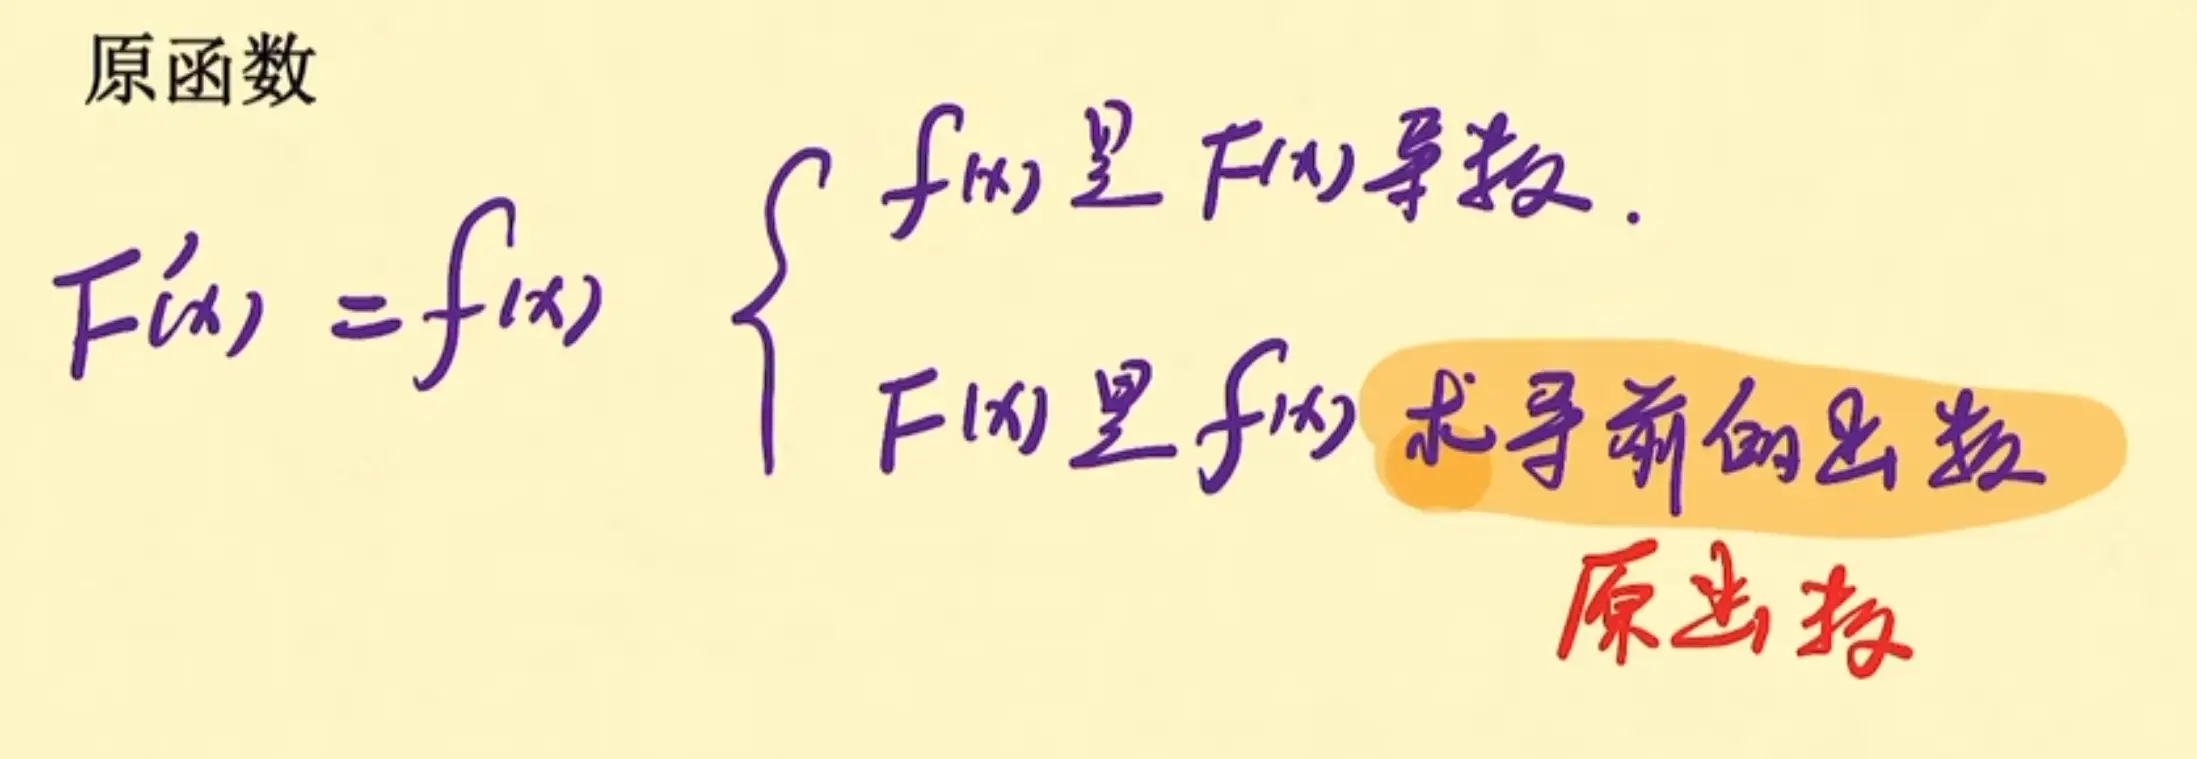 原函数
F'(x) = f(x)
f(x)是F(x)导数.
F(x)是f(x)求导前的函数
原函数